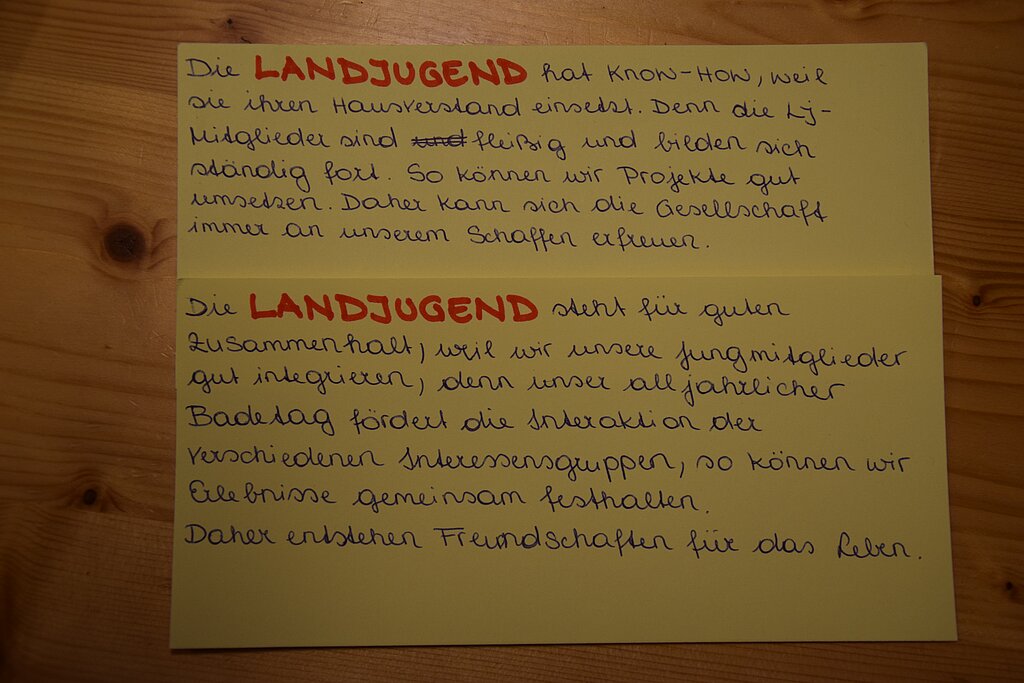 Die LANDJUGEND hat Know-How, weil
sie ihren Hausverstand einsetzt. Denn die Lj-
Mitglieder sind und fleißig und bilden sich
ständig fort. So können wir Projekte gut
umsetzen. Daher kann sich die Gesellschaft
immer an unserem Schaffen erfreuen.
Die LANDJUGEND steht für guten
Zusammenhalt, weil wir unsere Jungmitglieder
gut integrieren, denn unser alljährlicher
Badetag fördert die Interaktion der
verschiedenen Interessensgruppen, so können wir
Erlebnisse gemeinsam festhalten.
Daher entstehen Freundschaften für das Leben.